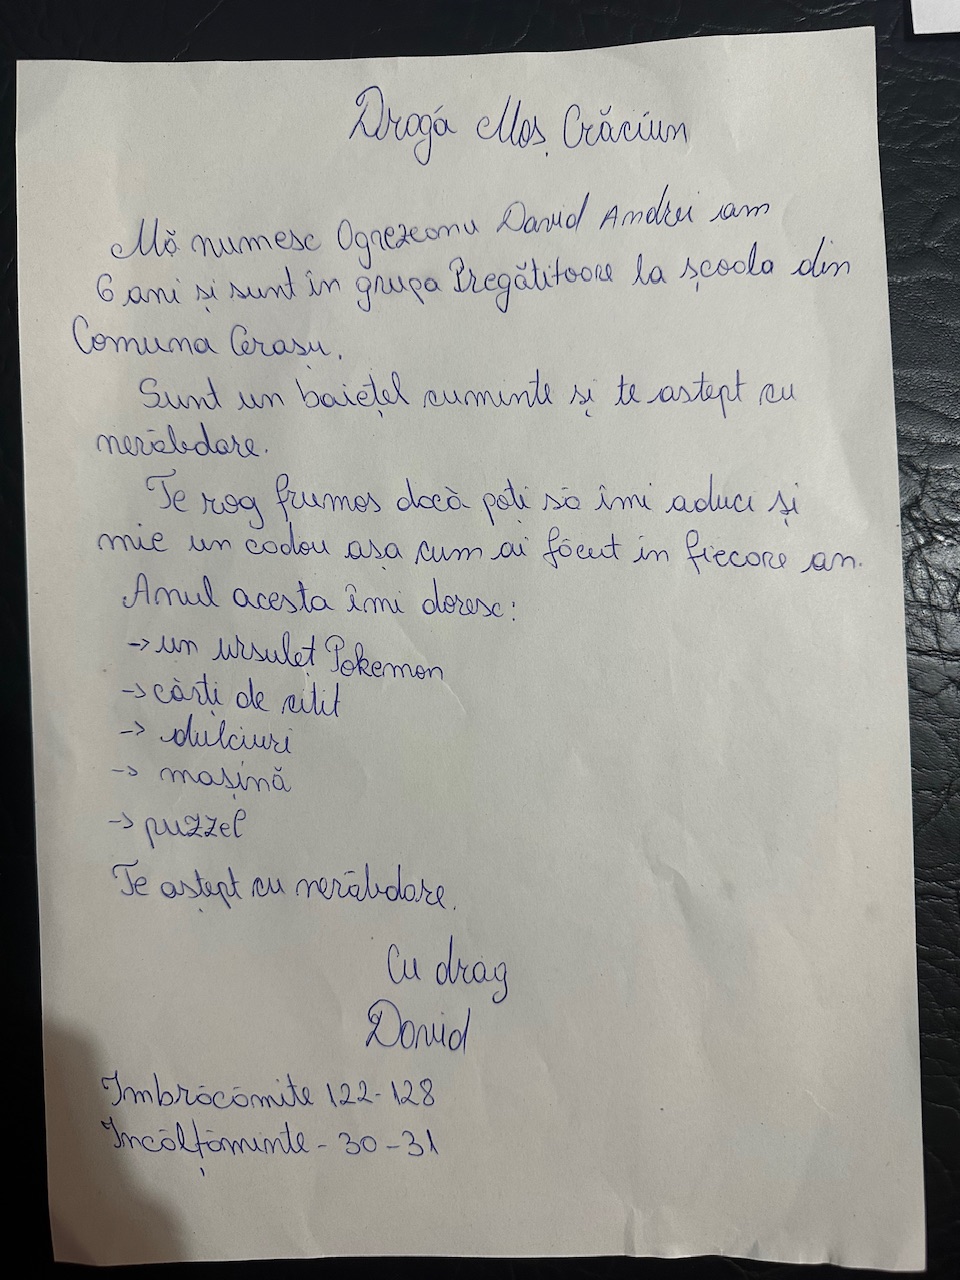 Dragă Moș Crăciun
Mă numesc Ogrezeanu David Andrei am
6 ani și sunt în grupa Pregătitoare la școala din
Comuna Cerașu.
Sunt un baiețel cuminte și te astept cu
nerăbdare.
Te rog frumos dacă poti să îmi aduci și
mie un cadou așa cum ai făcut in fiecare an.
Anul acesta îmi doresc:
→ un ursuleț Pokemon
→ cărți de citit
→ dulciuri
→ mașină
→ puzzel
Te aștept cu nerăbdare.
Cu drag
David
Imbrăcămite 122-128
Incălțăminte - 30-31